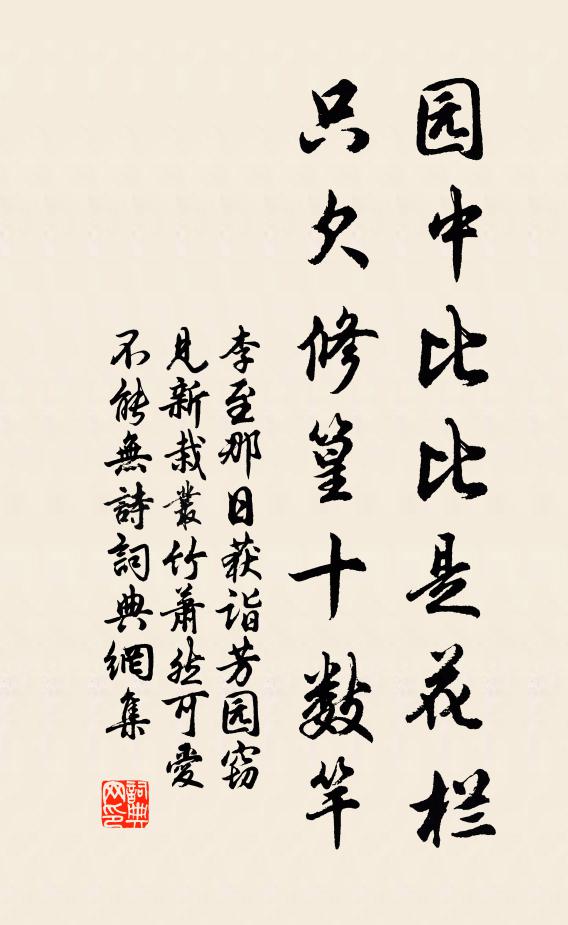 园中比比是花栏
只欠修篁十数竿
李至那日获诣芳园窃
见新栽叢竹萧然可愛
不能無詩詞典網集
詞典网印